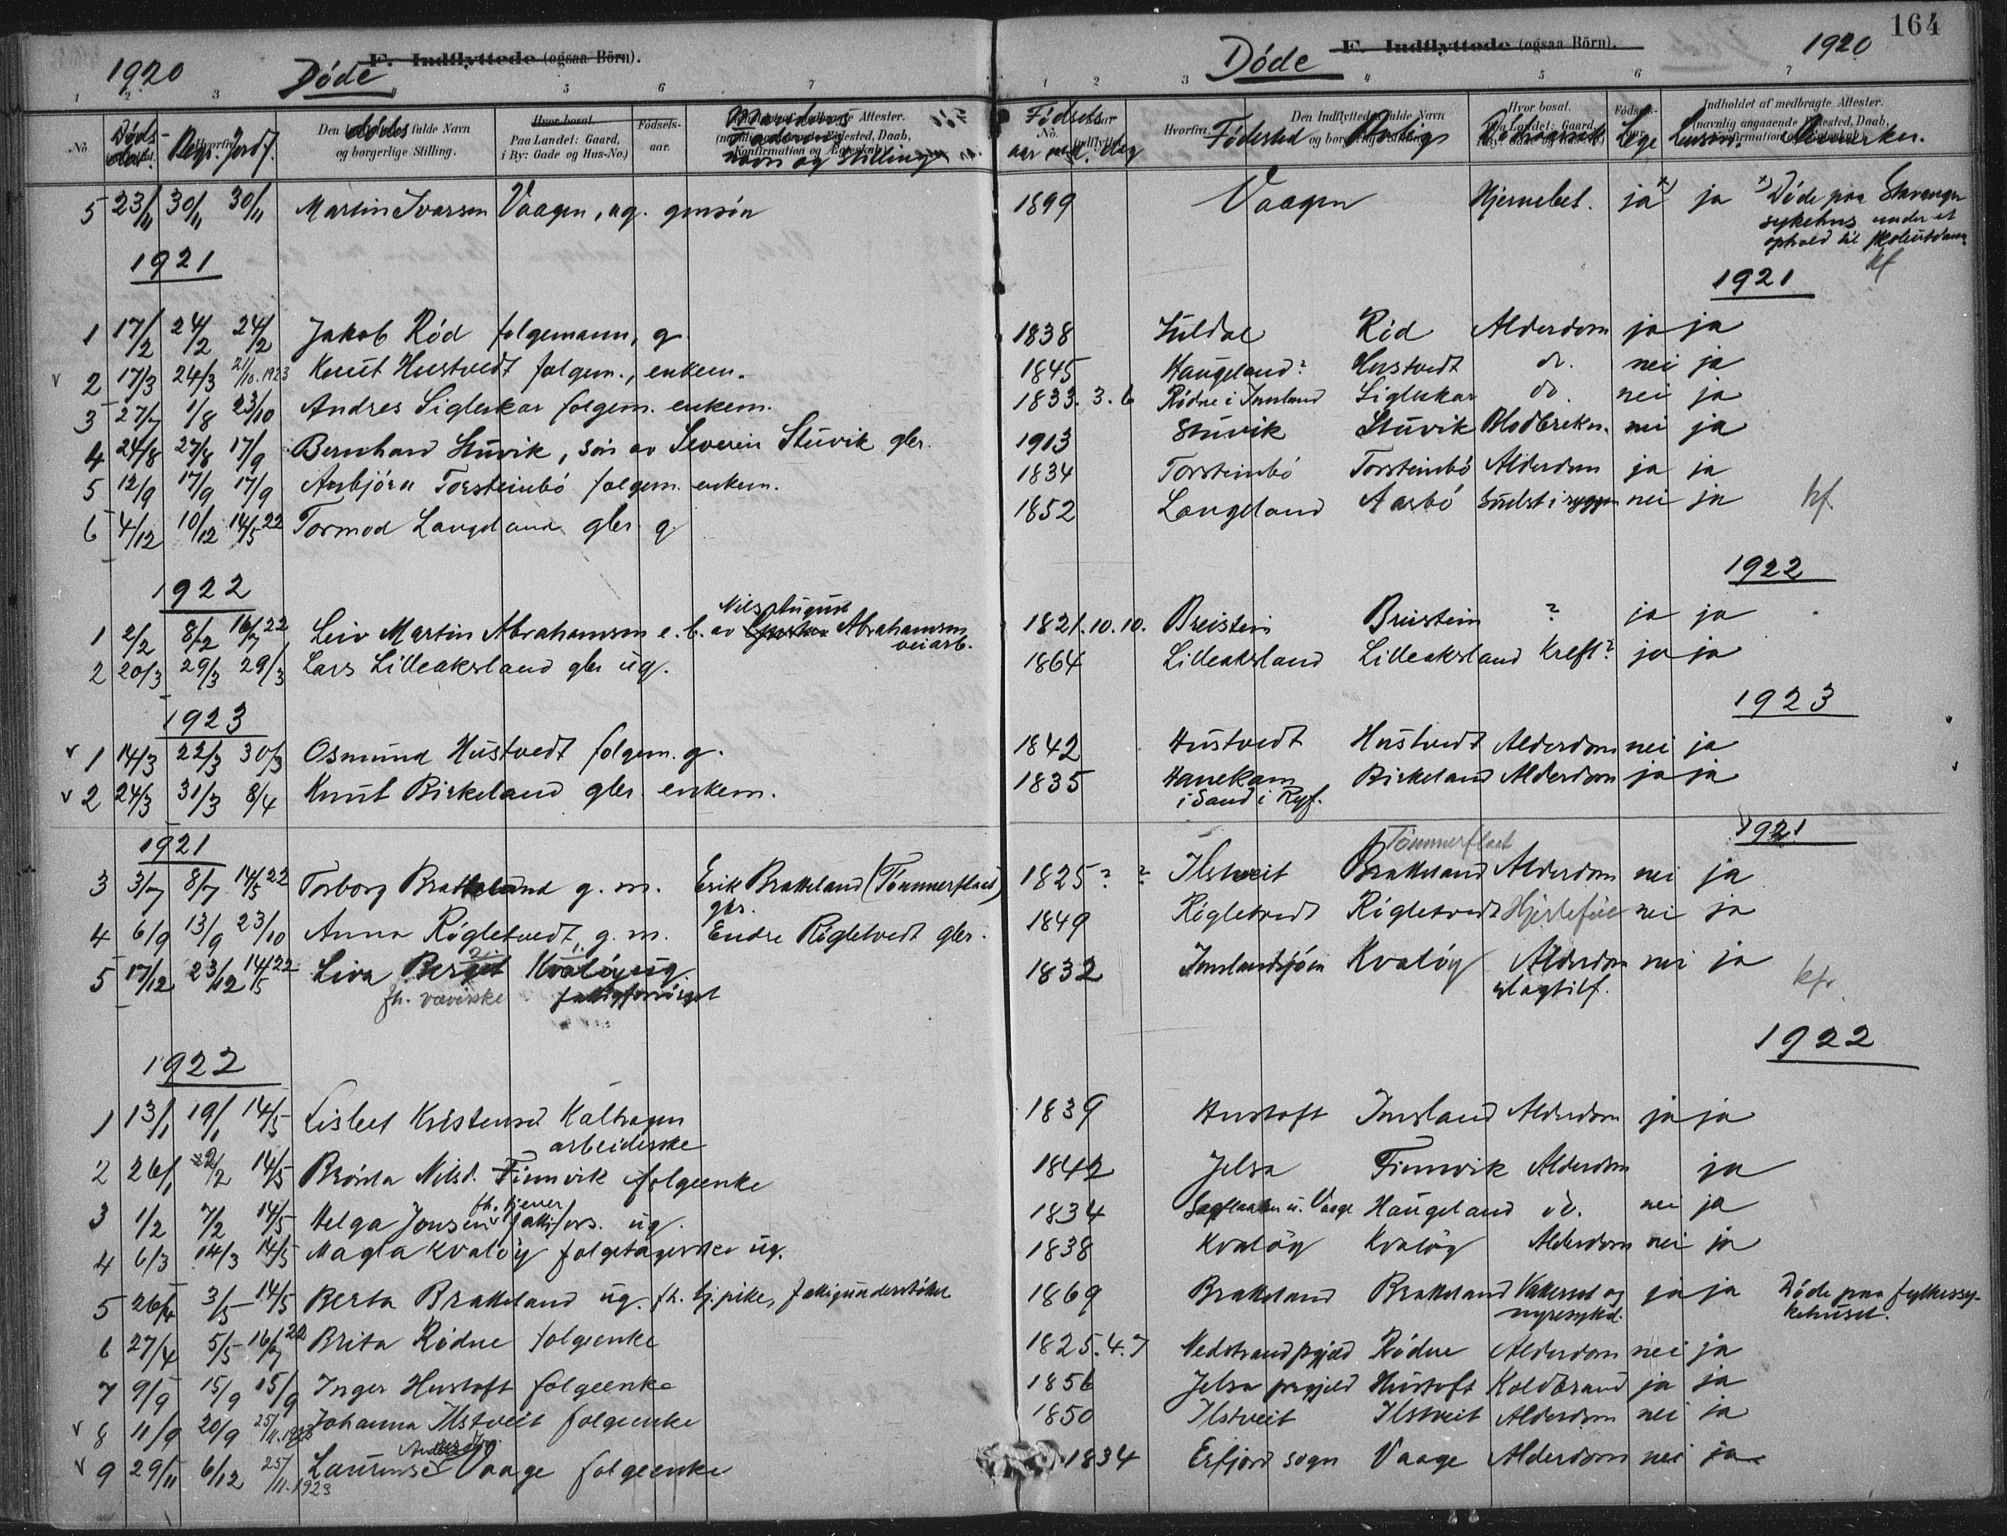 164
1920 Döde F. Indflyttede (ogsaa Börn).
Döde F. Indflyttede (ogsaa Börn). 1920
1 2 3 5 6 7
1 2 3 4 5 6 7
No. Döds Begr. Jordf. Den Dödes fulde Navn og borgerlige Stilling. Hvor bosat. Paa Landet: Gaard, i By: Gade og Hus-No.) Födsels-aar. navn og stilling
Födsels No. aar dag Hvorfra Födested Den Indflyttedes fulde Navn og borgerlige Bolig Hvor bosat. Dödsaarsak Födsels- Lege Indholdet af medbragte Attester. Anmerkn.
5 23/11 30/11 30/11 Martin Ivarsen Vaagen, ug. 1899 Vaagen Hjernebet. ja x) ja x) Döde paa Stavanger
sykehus under et
ophold til
kf
1921 1921
1 17/2 24/2 24/2 Jakob Röd folgemann, g. 1838 Suldal Röd Alderdom ja ja
v 2 17/3 24/3 21/10.1923 Knut Hustvedt folgem., enkem. 1845 Haugeland? Hustvedt do. nei ja
3 27/7 1/8 23/10 Andres Sigleskar folgem. enkem. 1833.3.6 Rödne i Imsland Sigleskar do. nei ja
4 24/8 27/8 17/9 Bernhard Stuvik, sön av Severin Stuvik gbr. 1913 Stuvik Stuvik Blodbrekn. nei ja
5 12/9 17/9 17/9 Asbjörn Torsteinbö folgem. enkem. 1834 Torsteinbö Torsteinbö Alderdom ja ja
6 4/12 10/12 14/5 22 Tormod Langeland gbr. g. 1852 Langeland Aasbö i ryggen nei ja kf.
1922 1922
Nils August
1 2/2 8/2 16/7 22 Leiv Martin Abrahamsen e. b. av Abrahamsen 1821.10.10. Breistein Breistein ? ja ja
veiarb.
2 20/3 29/3 29/3 Lars Lilleaksland gbr ug. 1864 Lilleaksland Lilleaksland Kreft? ja ja
1923 1923
v 1 14/3 22/3 30/3 Osmund Hustvedt folgem. g. 1842 Hustvedt Hustvedt Alderdom nei ja
v 2 24/3 31/3 8/4 Knut Birkeland gbr. enkem. 1835 Hanekam Birkeland Alderdom ja ja
i Sand i Ryf.
1921 1921
Tömmerflaet
3 3/7 8/7 14/5 22 Torborg Brakkeland g. m. Erik Brakkeland (Tömmerflaet) 1825? ? Ilstveit Brakkeland Alderdom nei ja
gbr.
4 6/9 13/9 23/10 Anna Rögletvedt, g. m. Endre Rögletvedt gbr. 1849 Rögletvedt Rögletvedt Hjertefeil nei ja
5 17/12 23/12 14/5 22 Liva Kvalöy ug. 1832 Imslandsjöen Kvalöy Alderdom nei ja kf.
fh. væverske fattigforsörget slagtilf.
1922 1922
1 13/1 19/1 14/5 Lisbet Kristensd. Kalhagen 1839 Hustoft Imsland Alderdom ja ja
arbeiderske
2 26/1 2/2 14/5 Brönla Nilsd. Finnvik folgeenke 1842 Jelsa Finnvik Alderdom ja
fh. tjener
3 1/2 7/2 14/5 Helga Jonsen fattigfors. ug. 1834 u. Vaage Haugeland do. nei ja
4 6/3 14/3 14/5 Magla Kvalöy folgetagerske ug. 1838 Kvalöy Kvalöy Alderdom nei ja
5 26/4 3/5 14/5 Berta Brakkeland ug. fh. tj.pike, fattigunderstöttet 1869 Brakkeland Brakkeland Vattersot og ja ja Döde paa fylkessy-
nyresykd. kehuset.
6 27/4 5/5 16/7 22 Brita Rödne folgeenke 1825.4.7 Nedstrand prgjeld Rödne Alderdom nei ja
7 9/9 15/9 15/9 Inger Hustoft folgeenke 1856 Jelsa prgjeld Hustoft Koldbrand ja ja
v 8 11/9 20/9 25/11.1923 Johanna Ilstveit folgeenke 1850 Ilstveit Ilstveit Alderdom nei ja
v 9 29/11 6/12 25/11.1923 Laurense Vaage folgeenke 1834 Erfjord sogn Vaage Alderdom nei ja